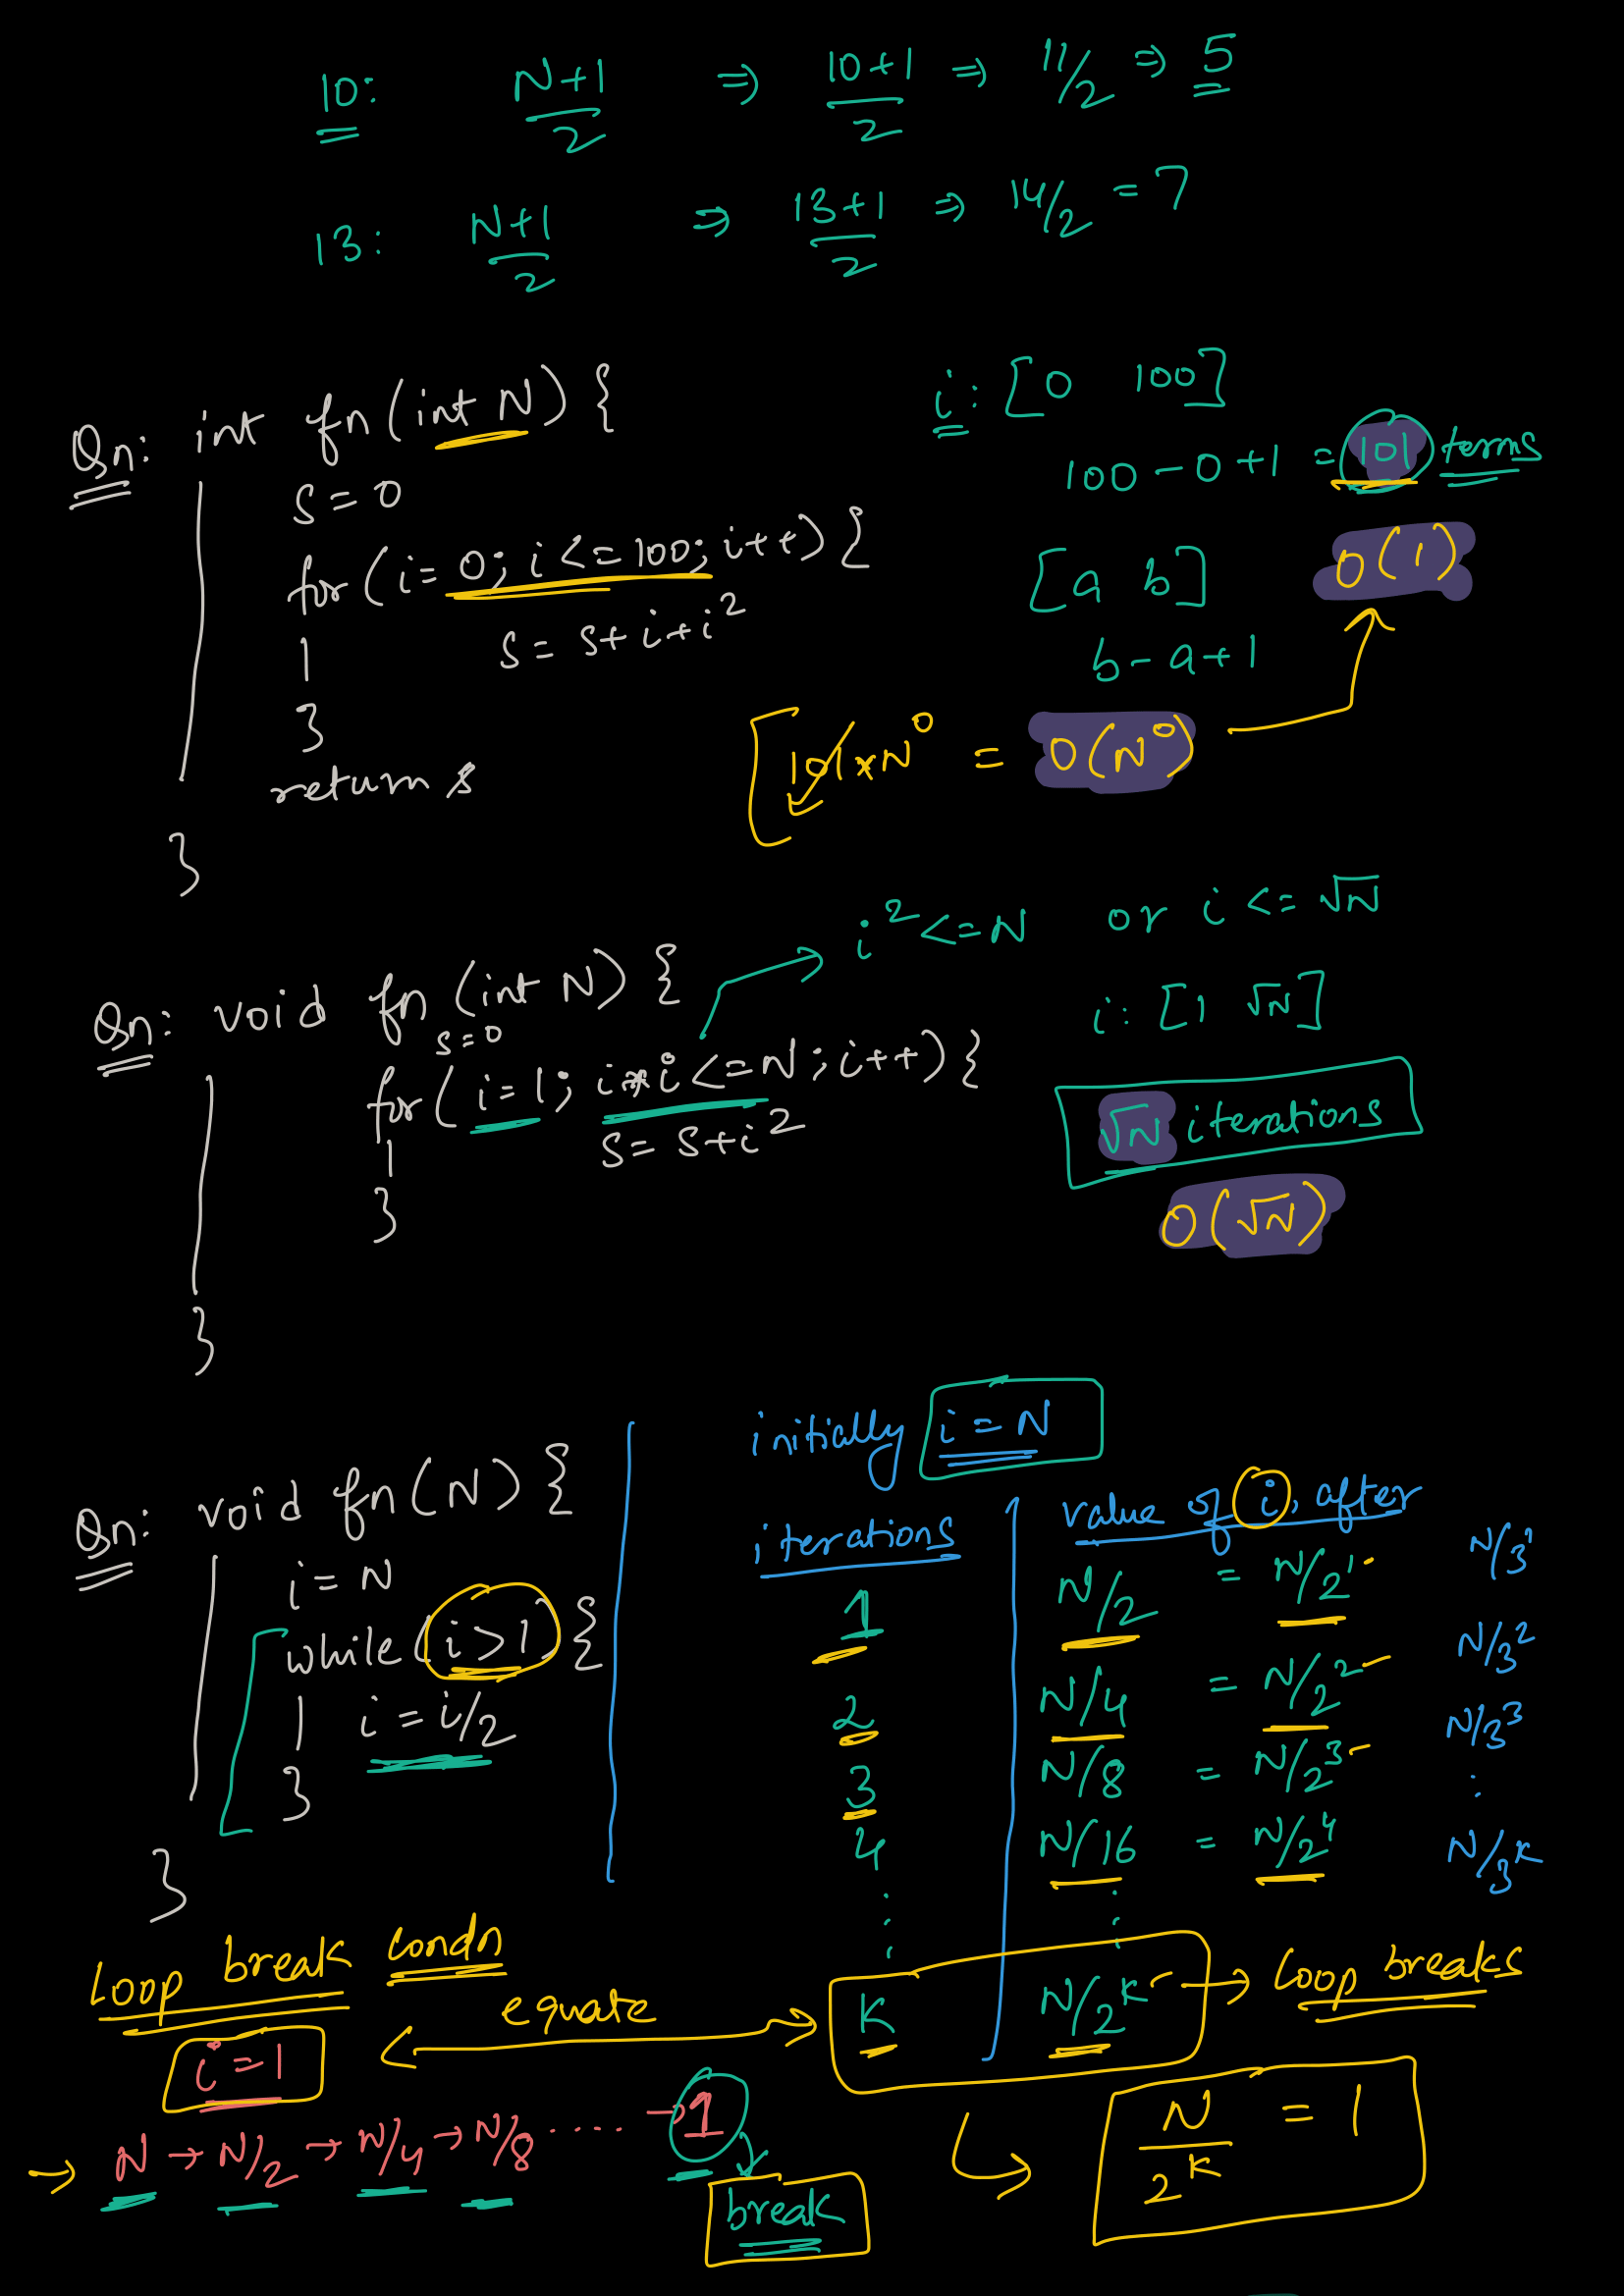 10: N+1/2 ⇒ 10+1/2 ⇒ 11/2 ⇒ 5
13: N+1/2 ⇒ 13+1/2 ⇒ 14/2 = 7
Qn: int fn(int N) {
s = 0
for (i = 0; i <= 100; i++) {
s = s + i + i²
}
return s
}
i: [0 100]
100 - 0 + 1 = 101 terms
O(1)
[a b]
b - a + 1
[101 * N⁰ = O(N⁰)
Qn: void fn (int N) {
s = 0
for (i = 1; i*i <= N; i++) {
s = s + i²
}
}
i² <= N or i <= √N
i: [1 √N]
√N iterations
O(√N)
Qn: void fn(N) {
i = N
while (i > 1) {
i = i/2
}
}
initially i = N
iterations value of i, after
1 N/2 = N/2¹ N/3¹
2 N/4 = N/2² N/3²
3 N/8 = N/2³ N/3³
4 N/16 = N/2⁴ N/3ᴷ
K N/2ᴷ → Loop breaks
Loop break condn
equate
i = 1
→ N → N/2 → N/4 → N/8 ..... → 1
break
N/2ᴷ = 1